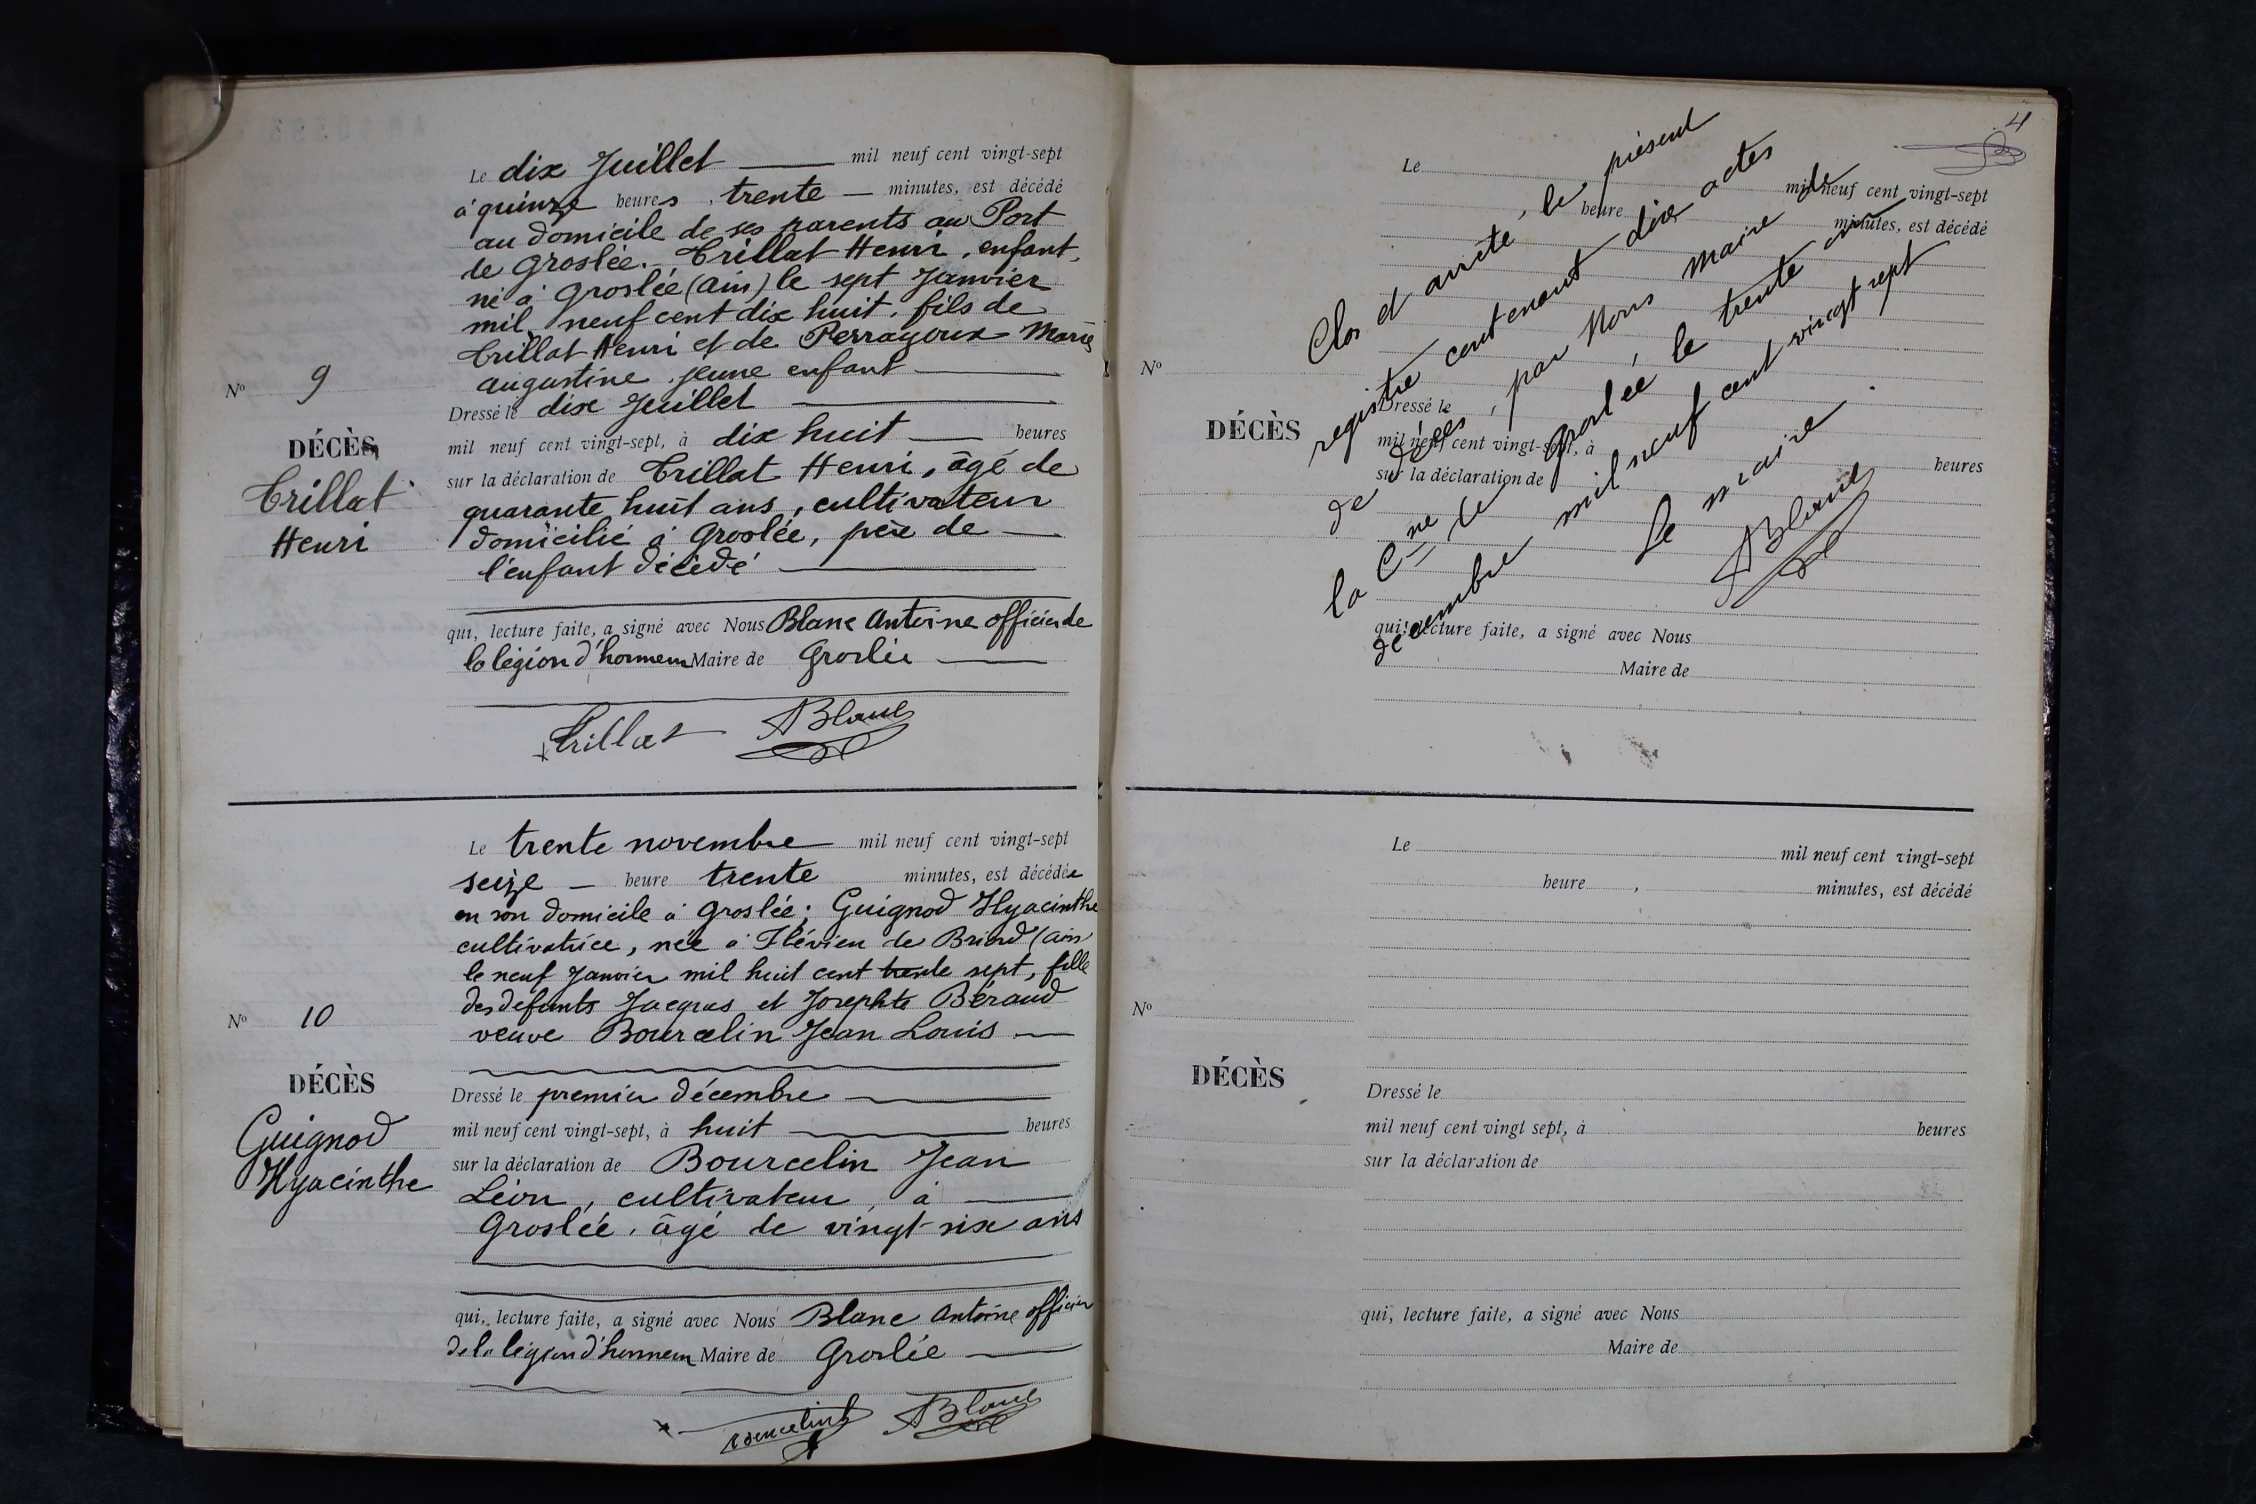 Le dix Juillet mil neuf cent vingt-sept
à quinze heures, trente minutes, est décédé
au domicile de ses parents au Port
de Groslée. Trillat Henri, enfant,
né à Groslée (Ain) le sept Janvier
mil neuf cent dix huit, fils de
Trillat Henri et de Perragoux Marie
augustine, jeune enfant
Nº 9
Dressé le dix Juillet
DÉCÈS
mil neuf cent vingt-sept, à dix huit heures
Trillat
Henri
sur la déclaration de Trillat Henri, âgé de
quarante huit ans, cultivateur
domicilié à Groslée, père de
l'enfant décédé
qui, lecture faite, a signé avec Nous Blanc Antoine officier de
la légion d'honneur Maire de Groslée
Trillat ABlanc
Le trente novembre mil neuf cent vingt-sept
seize heure trente minutes, est décédée
en son domicile à Groslée; Guignod Hyacinthe
cultivatrice, née à Flévieu de Briord (Ain
le neuf Janvier mil huit cent trente sept, fille
des defunts Jacques et Josephte Béraud
veuve Bourcelin Jean Louis
Nº 10
DÉCÈS
Guignod
Hyacinthe
Dressé le premier décembre
mil neuf cent vingt-sept, à huit heures
sur la déclaration de Bourcelin Jean
Léon, cultivateur, à
Groslée, âgé de vingt-six ans
qui, lecture faite, a signé avec Nous Blanc Antoine officier
de la légion d'honneur Maire de Groslée
Bourcelin ABlanc
4
Le mil neuf cent vingt-sept
heure minutes, est décédé
Clos et arrêté, le présent
registre contenant dix actes
de décès, par Nous Maire de
la Cne de Groslée le trente un
décembre mil neuf cent vingt sept
Le maire.
ABlanc
Nº
DÉCÈS
Dressé le
mil neuf cent vingt-sept, à heures
sur la déclaration de
qui, lecture faite, a signé avec Nous
Maire de
Le mil neuf cent vingt-sept
heure, minutes, est décédé
Nº
DÉCÈS
Dressé le
mil neuf cent vingt sept, à heures
sur la déclaration de
qui, lecture faite, a signé avec Nous
Maire de